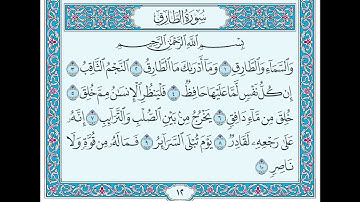 سُورَةُ الطَّارِقِ
بِسْمِ اللَّهِ الرَّحْمَٰنِ الرَّحِيمِ
وَالسَّمَاءِ وَالطَّارِقِ ١ وَمَا أَدْرَاكَ مَا الطَّارِقُ ٢ النَّجْمُ الثَّاقِبُ ٣
إِن كُلُّ نَفْسٍ لَّمَّا عَلَيْهَا حَافِظٌ ٤ فَلْيَنظُرِ الْإِنسَانُ مِمَّ خُلِقَ ٥
خُلِقَ مِن مَّاءٍ دَافِقٍ ٦ يَخْرُجُ مِن بَيْنِ الصُّلْبِ وَالتَّرَائِبِ ٧ إِنَّهُ
عَلَىٰ رَجْعِهِ لَقَادِرٌ ٨ يَوْمَ تُبْلَى السَّرَائِرُ ٩ فَمَا لَهُ مِن قُوَّةٍ وَلَا
نَاصِرٍ ١٠
١٢